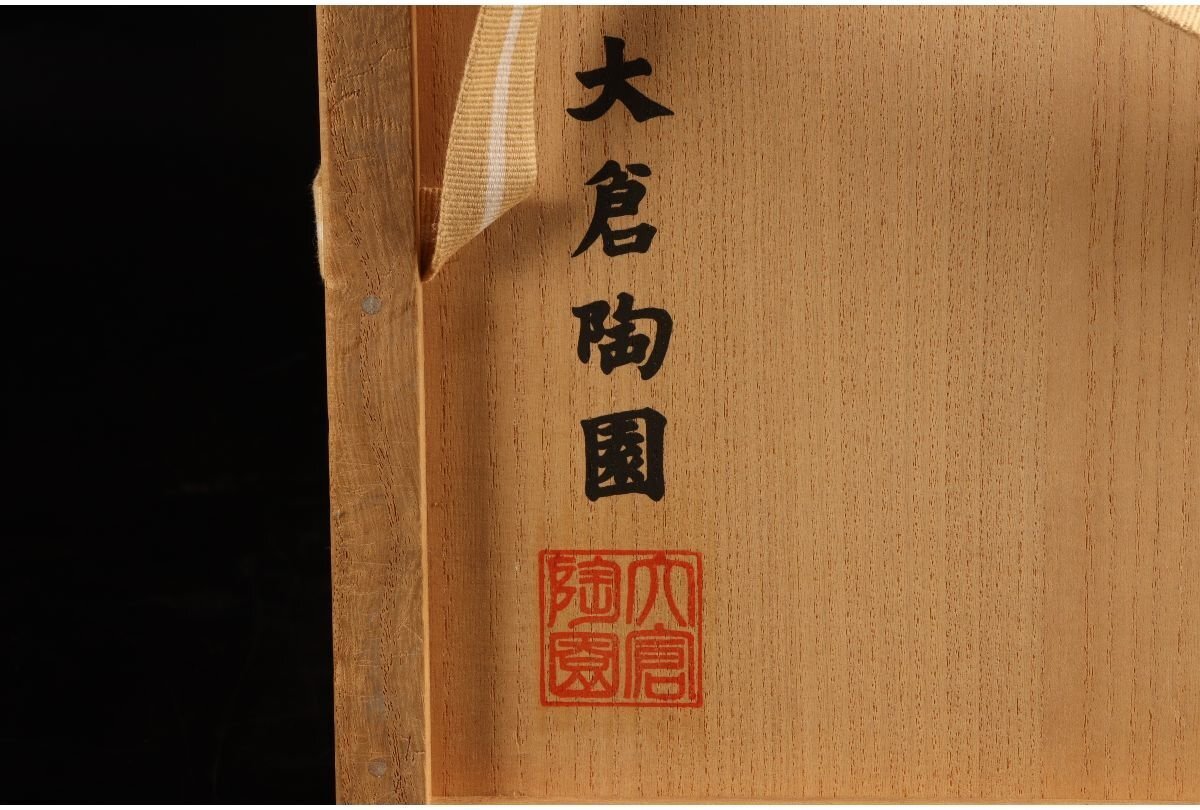 大倉陶園
大倉
陶園